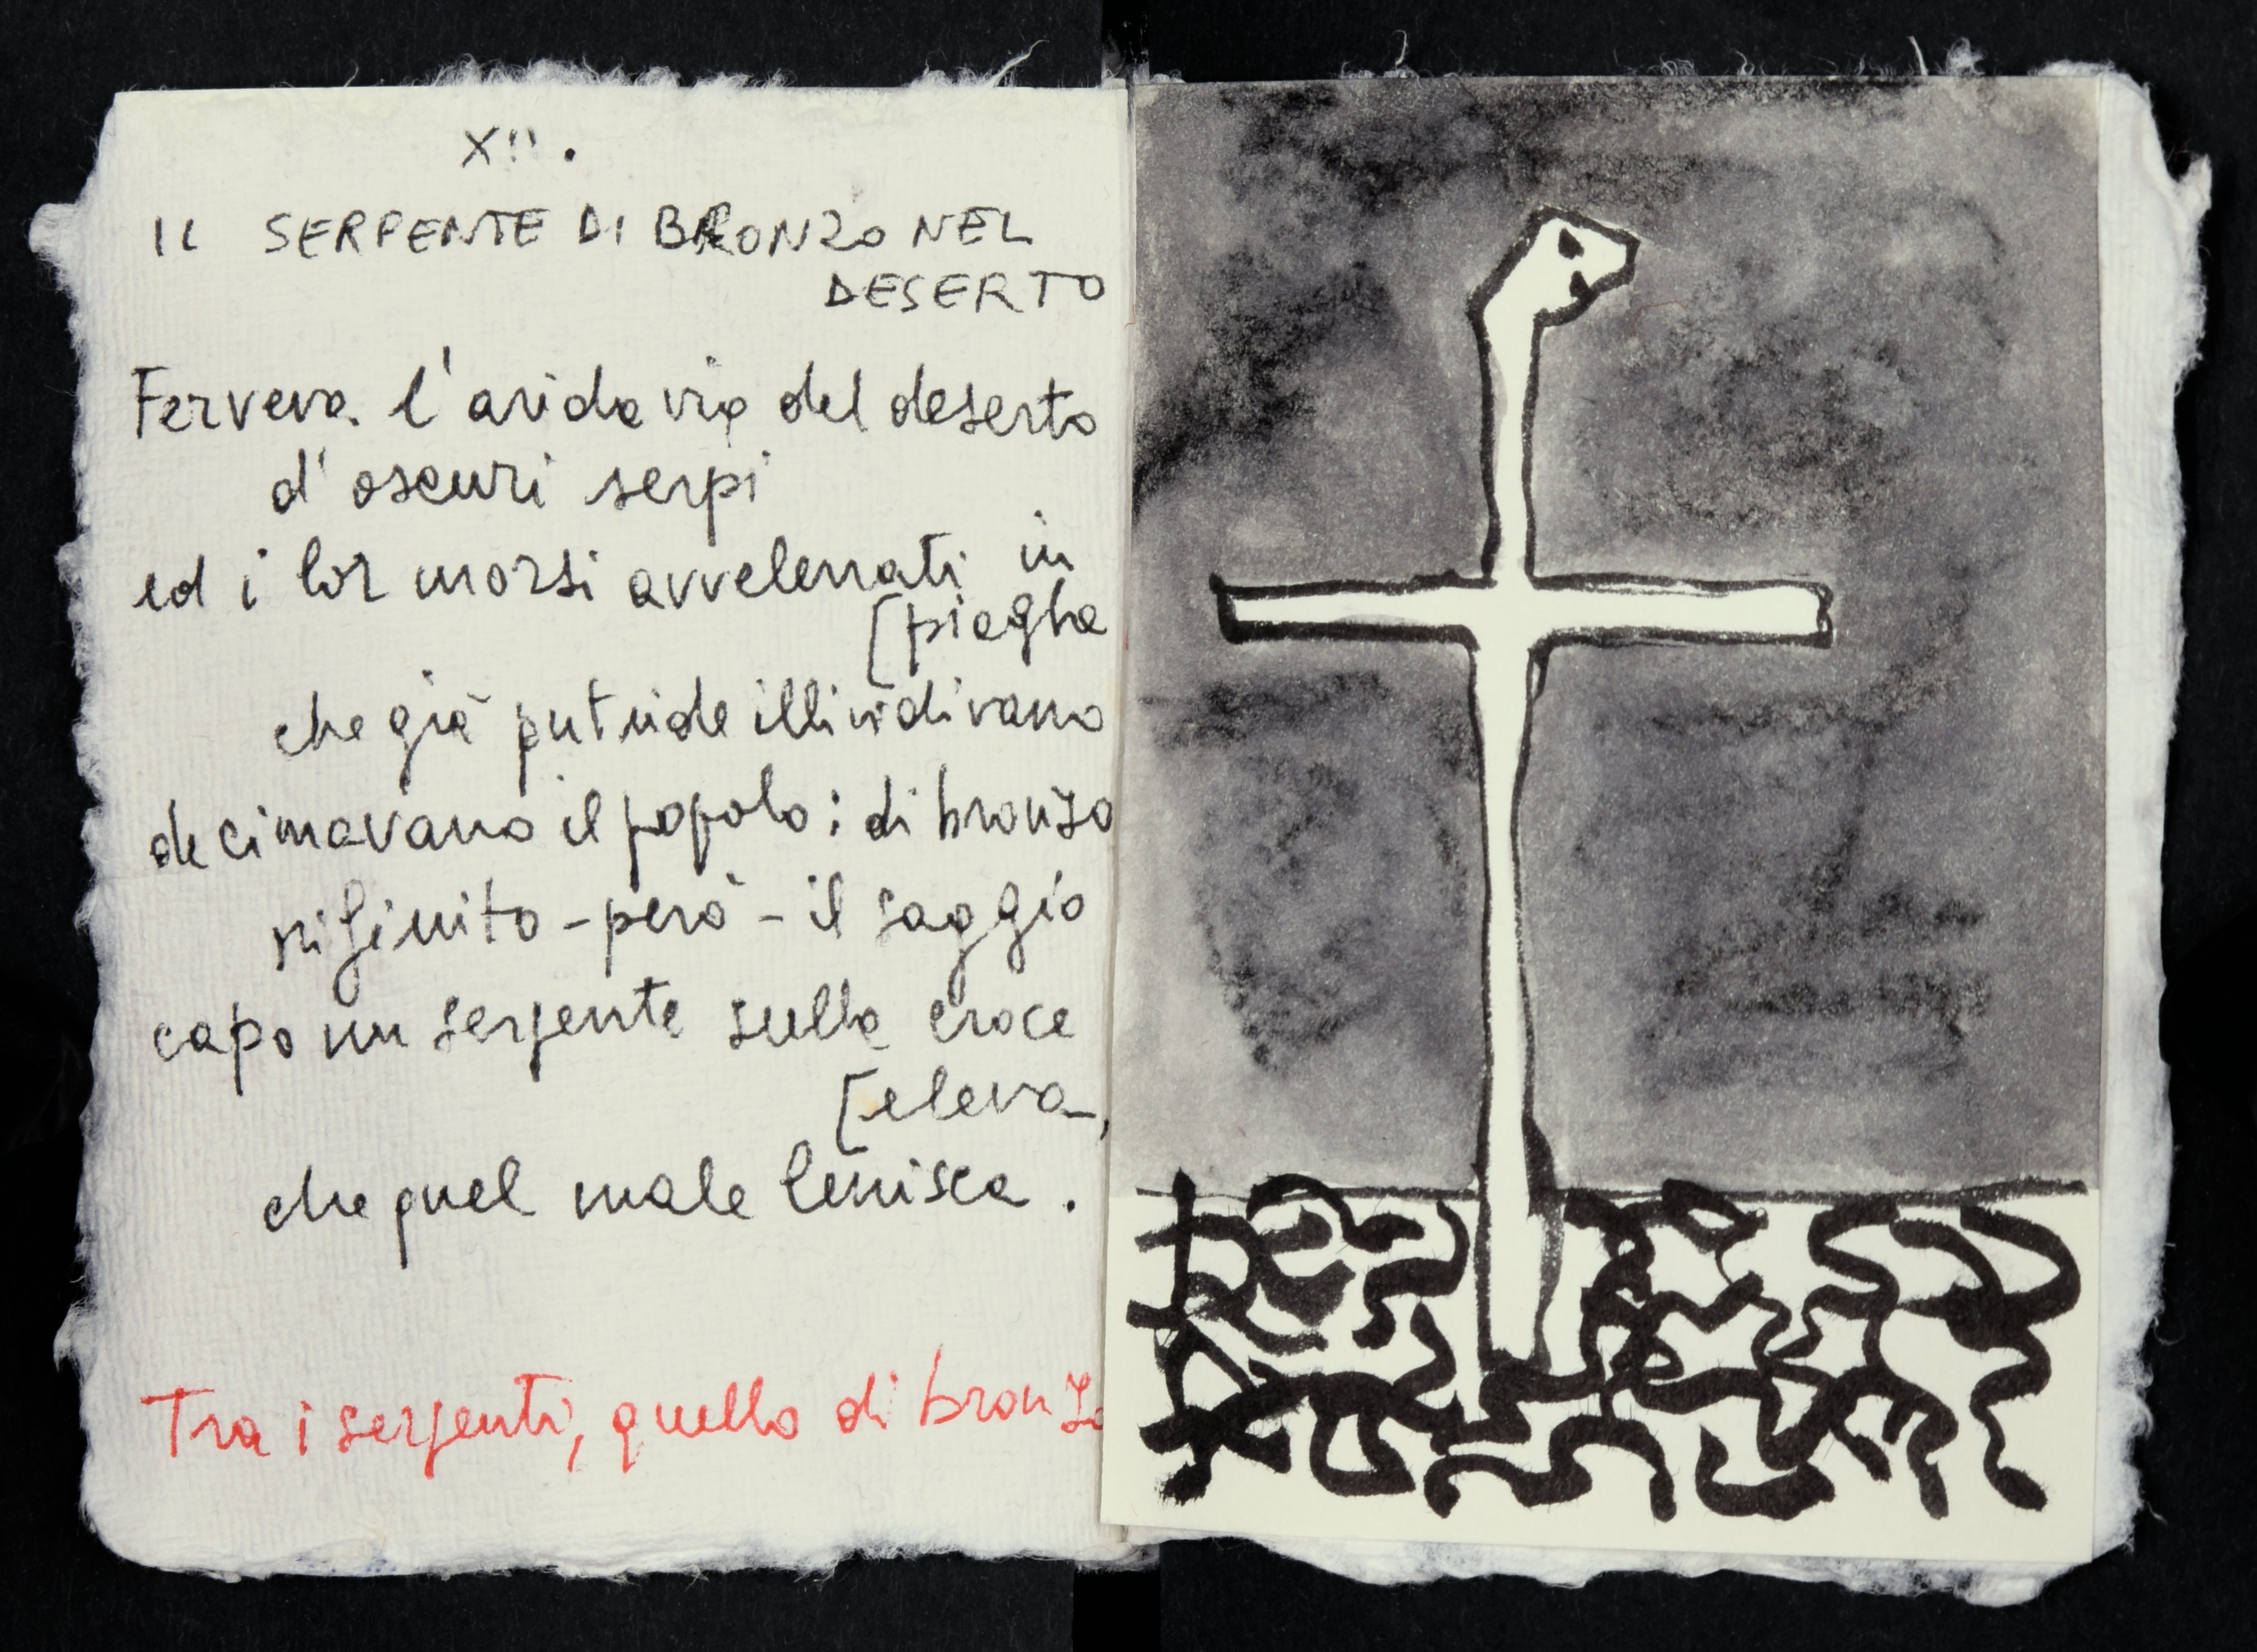 XII.
IL SERPENTE DI BRONZO NEL
DESERTO
Ferveva l'arida via del deserto
d'oscuri serpi
ed i lor morsi avvelenati in
[piaghe
che già putride illividivano
decimavano il popolo: di bronzo
rifinito - però - il saggio
capo un serpente sulla croce
[eleva,
che quel male lenisca.
Tra i serpenti, quello di bronzo